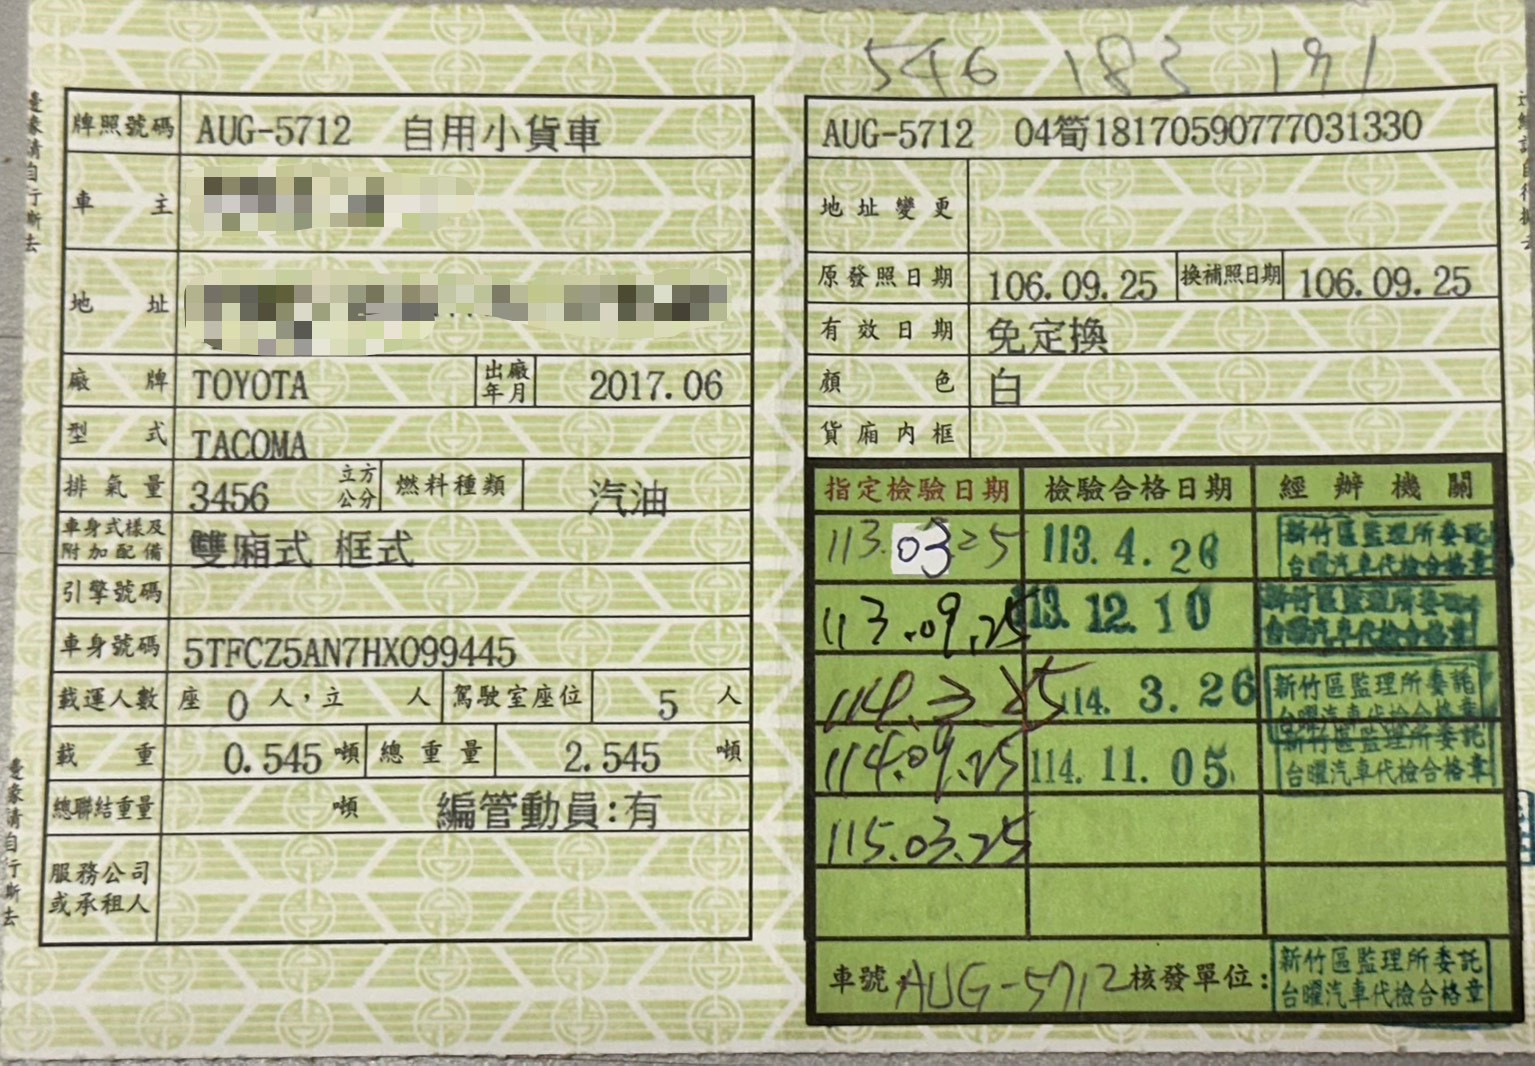 546 183 191
邊緣請自行撕去
牌照號碼 AUG-5712 自用小貨車
車主
地址
廠牌 TOYOTA 出廠年月 2017.06
型式 TACOMA
排氣量 3456 立方公分 燃料種類 汽油
車身式樣及附加配備 雙廂式 框式
引擎號碼
車身號碼 5TFCZ5AN7HX099445
載運人數 座 0 人,立 人 駕駛室座位 5 人
載重 0.545 噸 總重量 2.545 噸
總聯結重量 噸 編管動員:有
服務公司或承租人
邊緣請自行撕去
AUG-5712 04筍18170590777031330
地址變更
原發照日期 106.09.25 換補照日期 106.09.25
有效日期 免定換
顏色 白
貨廂內框
指定檢驗日期 檢驗合格日期 經辦機關
113.03.25 113.4.26 新竹區監理所委託 台曜汽車代檢合格章
113.09.25 113.12.10 新竹區監理所委託 台曜汽車代檢合格章
114.3.25 114.3.26 新竹區監理所委託 台曜汽車代檢合格章
114.09.25 114.11.05 新竹區監理所委託 台曜汽車代檢合格章
115.03.25
車號:AUG-5712 核發單位: 新竹區監理所委託 台曜汽車代檢合格章